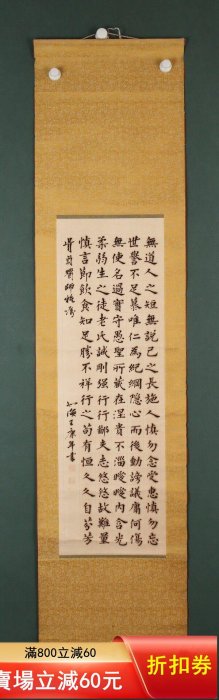 無道人之短無說己之長施人慎勿念受惠慎勿忘
世譽不足慕唯仁為紀綱隱心而後動謗議庸何傷
無使名過實守愚聖所藏在涅貴不淄曖曖內含光
柔弱生之徒老氏誡剛強行行鄙夫志悠悠故難量
慎言節飲食知足勝不祥行之苟有恒久久自芬芳
王康年書
滿800立減60
賣場立減60元
折扣券